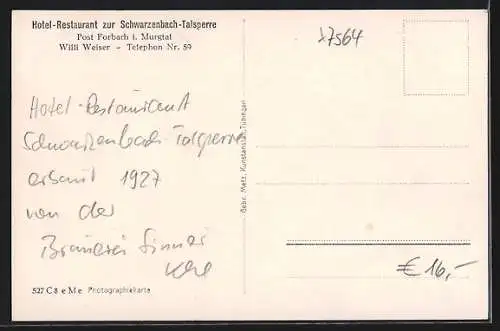 Hotel-Restaurant zur Schwarzenbach-Talsperre
Post Forbach i. Murgtal
Willi Weiser - Telephon Nr. 59
Hotel-Restaurant
Schwarzenbach-Talsperre
erbaut 1927
von der
Brauerei Sinner
527 C 8 e M e Photographiekarte
Gebr. Metz, Kunstanstalt, Tübingen
x7564
€ 16,-